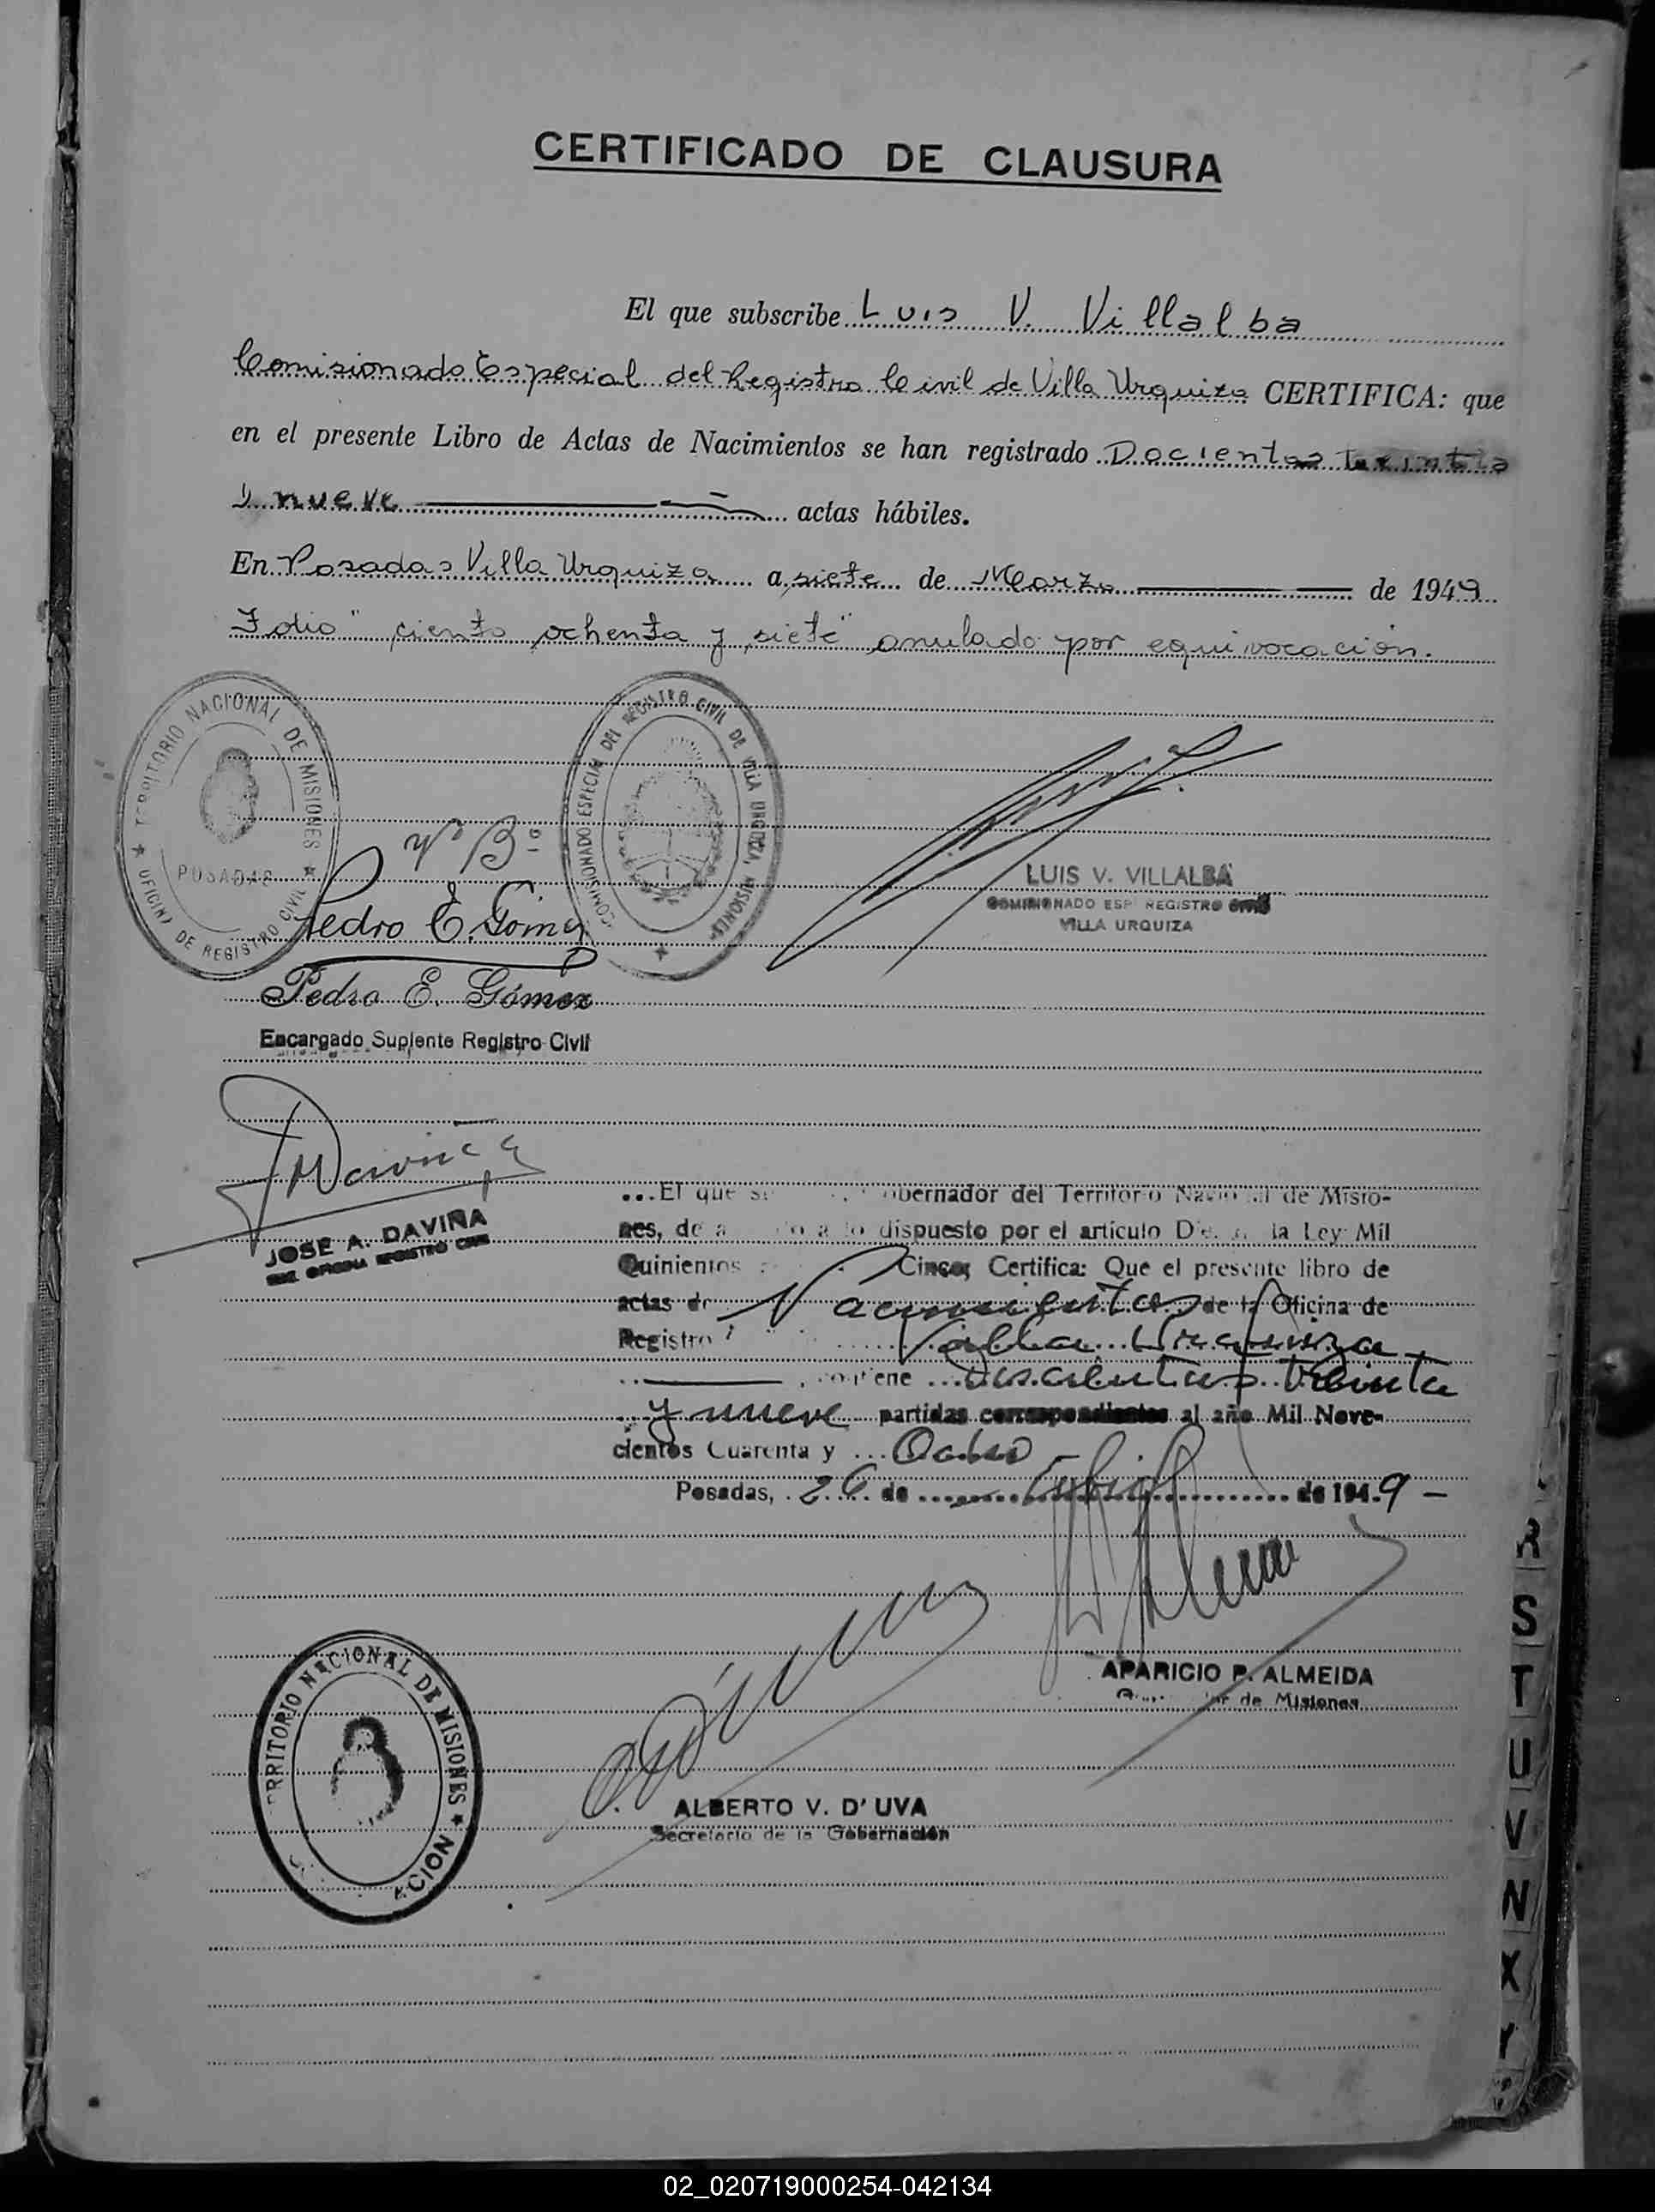 CERTIFICADO DE CLAUSURA
El que subscribe Luis V. Villalba
Comisionado Especial del Registro Civil de Villa Urquiza CERTIFICA: que
en el presente Libro de Actas de Nacimientos se han registrado Docientos Treinta
y nueve actas hábiles.
En Posadas Villa Urquiza a siete de Marzo de 1949
Folio "ciento ochenta y siete" anulado por equivocación.
TERRITORIO NACIONAL DE MISIONES
POSADAS
OFICINA DE REGISTRO CIVIL
COMISIONADO ESPECIAL DEL REGISTRO CIVIL DE VILLA URQUIZA, MISIONES
Vº Bº
LUIS V. VILLALBA
COMISIONADO ESP REGISTRO CIVIL
VILLA URQUIZA
Pedro E. Gómez
Pedro E. Gómez
Encargado Suplente Registro Civil
JOSE A. DAVIÑA
OFICINA REGISTRO CIVIL
El que obernador del Territorio Nacional de Misio-
nes, de a lo dispuesto por el artículo la Ley Mil
Quinientos Cinco; Certifica: Que el presente libro de
actas de Nacimientos de la Oficina de
Registro Villa Urquiza
contiene Doscientas treinta
y nueve partidas correspondientes al año Mil Nove-
cientos Cuarenta y Ocho
Posadas, 26 de Abril de 1949
APARICIO P. ALMEIDA
de Misiones
ALBERTO V. D'UVA
Secretario de la Gobernación
RRITORIO NACIONAL DE MISIONES
ACION
R
S
T
U
V
N
X
Y
02_020719000254-042134